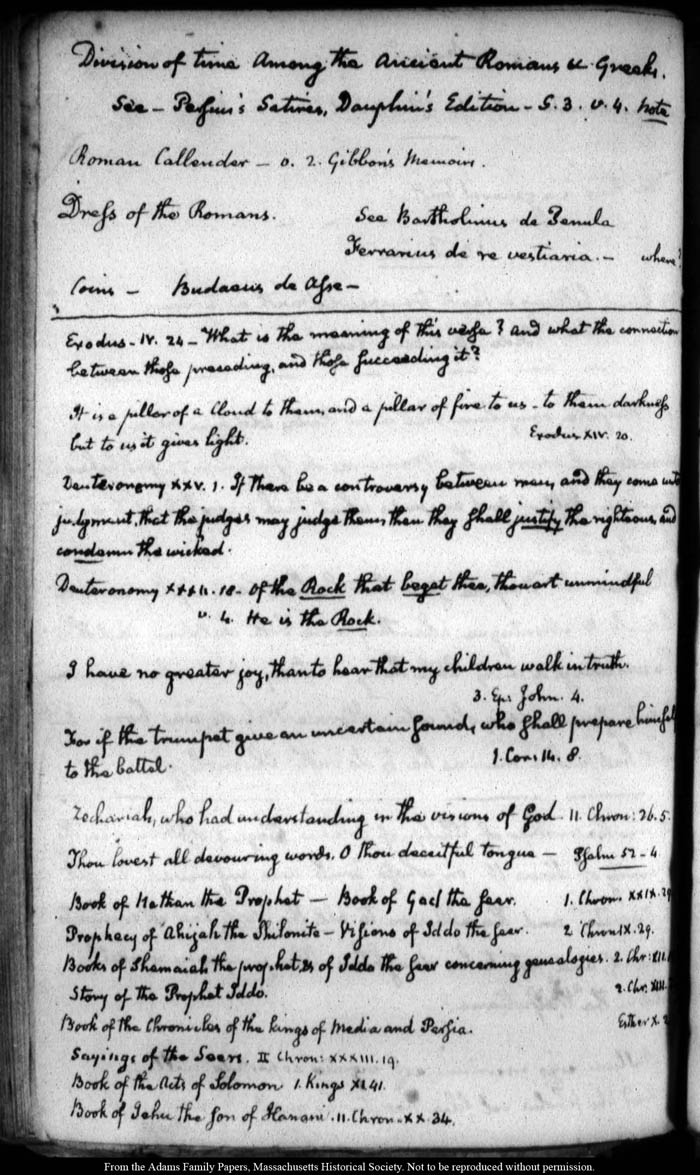 Division of time Among the Ancient Romans & Greeks.
See - Persius's Satires, Dauphin's Edition - S. 3. v. 4. Note
Roman Callender - o. 2. Gibbon's Memoirs.
Dress of the Romans. See Bartholinus de Penula
Ferrarius de re vestiaria. - where?
Coins - Budaeus de Asse -
Exodus - IV. 24 - What is the meaning of this verse? and what the connection
between those preceding, and those succeeding it?
It is a pillar of a Cloud to them, and a pillar of fire to us - to them darkness
but to us it gives light. Exodus XIV. 20.
Deuteronomy XXV. 1. If there be a controversy between men, and they come unto
judgment, that the judges may judge them, then they shall justify the righteous, and
condemn the wicked.
Deuteronomy XXXII. 18. Of the Rock that begat thee, thou art unmindful
v. 4. He is the Rock.
I have no greater joy, than to hear that my children walk in truth.
3. Ep: John. 4.
For if the trumpet give an uncertain sound, who shall prepare himself
to the battel. 1. Cor: 14. 8.
Zechariah, who had understanding in the visions of God. II. Chron: 26. 5.
Thou lovest all devouring words, O thou deceitful tongue - Psalm 52 - 4
Book of Nathan the Prophet - Book of Gad the Seer. 1. Chron. XXIX. 29
Prophecy of Ahijah the Shilonite - Visions of Iddo the Seer. 2 Chron IX. 29.
Books of Shemaiah the prophet, & of Iddo the Seer concerning genealogies. 2. Chr: XII.
Story of the Prophet Iddo. 2. Chr. XIII.
Book of the Chronicles of the kings of Media and Persia. Esther X. 2
Sayings of the Seers. II Chron: XXXIII. 19.
Book of the Acts of Solomon 1. Kings XI. 41.
Book of Jehu the Son of Hanani. II. Chron. XX. 34.
From the Adams Family Papers, Massachusetts Historical Society. Not to be reproduced without permission.